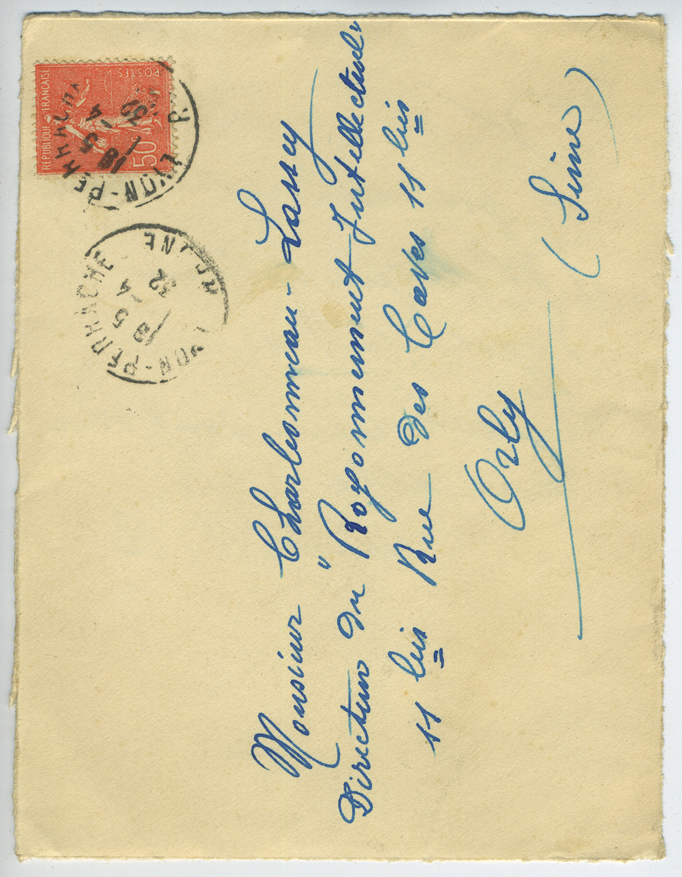 REPUBLIQUE FRANÇAISE
POSTES
50
LYON-PERRACHE
18
5 - 4
32
LYON-PERRACHE
RHONE
18
5 - 4
32
Monsieur Charbonneau-Lassay
Directeur du "Rayonnement Intellectuel"
11 bis Rue des Caves 11 bis
Orly
(Seine)